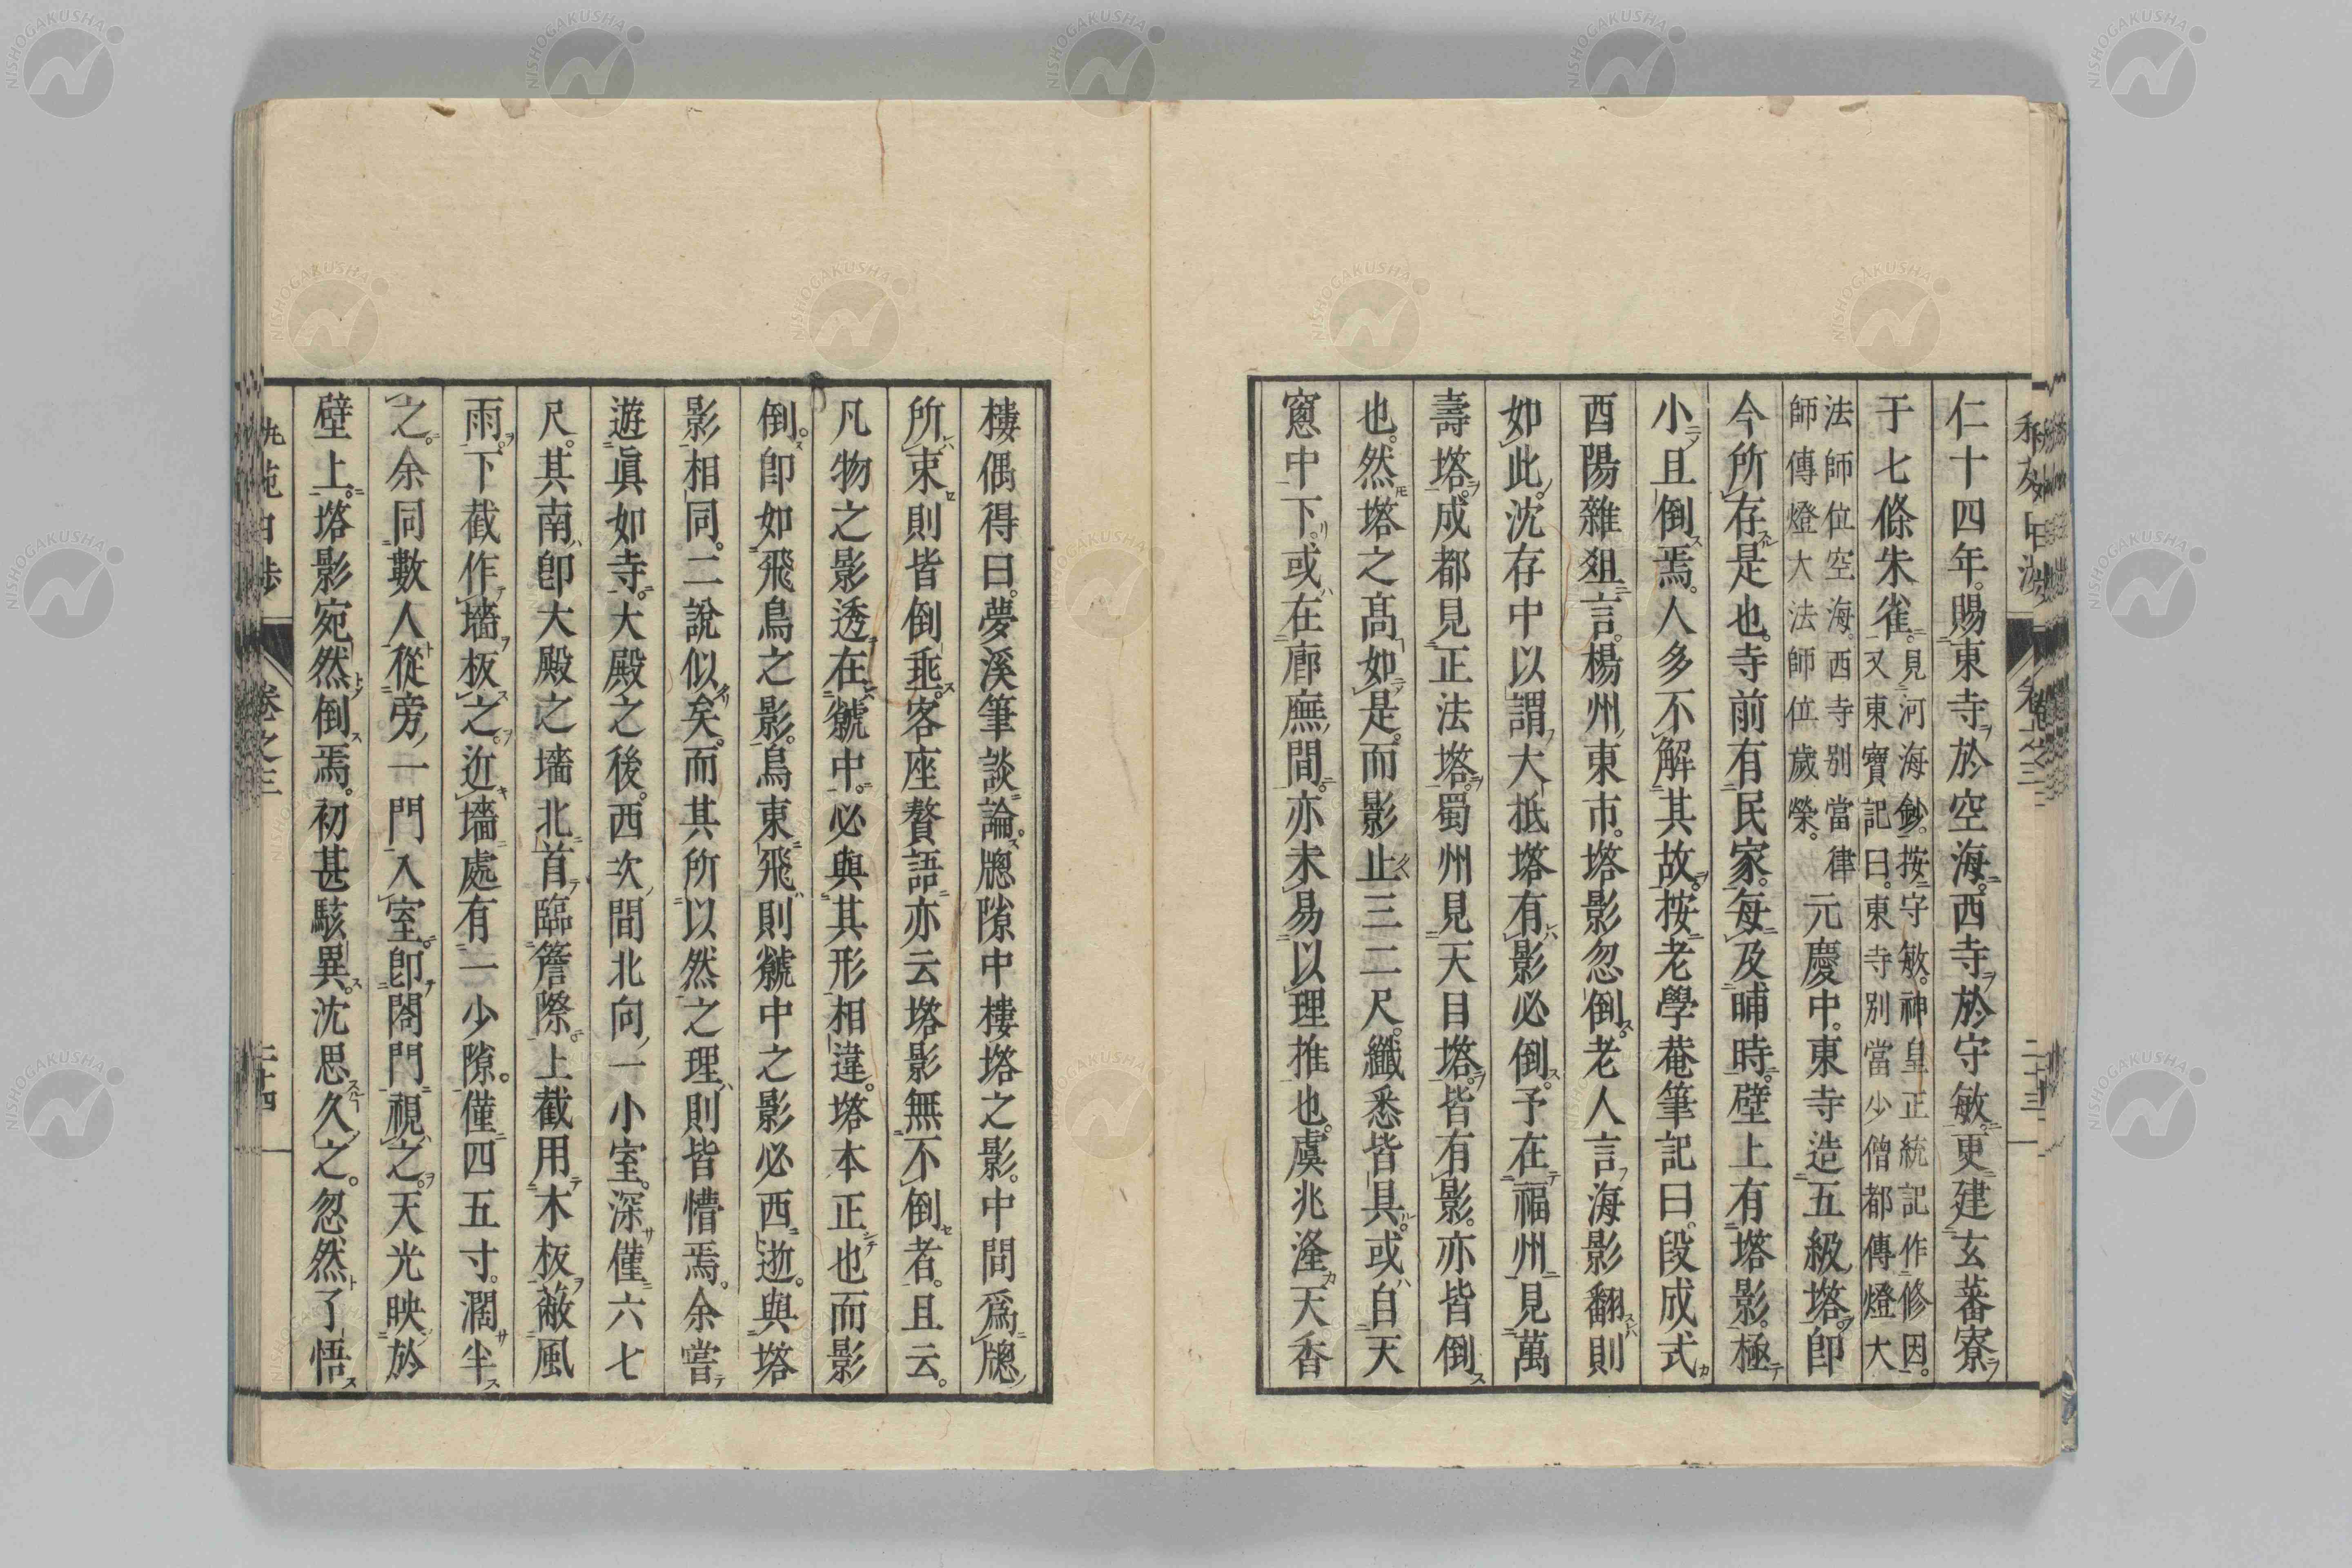 仁十四年。賜東寺於空海。西寺於守敏。更建玄蕃寮
于七條朱雀。見河海鈔。按守敏。神皇正統記作修因。
又東寶記曰。東寺別當少僧都傳燈大
法師位空海。西寺別當律
師傳燈大法師位歲榮。
元慶中。東寺造五級塔。即
今所存是也。寺前有民家。每及晡時。壁上有塔影。極
小且倒焉。人多不解其故。按老學菴筆記曰。段成式
酉陽雜俎言。楊州東市。塔影忽倒。老人言海影翻則
如此。沈存中以謂大抵塔有影必倒。予在福州見萬
壽塔。成都見正法塔。蜀州見天目塔。皆有影。亦皆倒
也。然塔之高如是。而影止三二尺。纖悉皆具。或自天
窻中下。或在廊廡間。亦未易以理推也。虞兆漋天香
樓偶得曰。夢溪筆談論。牕隙中樓塔之影。中間爲牕
所束則皆倒垂。客座贅語亦云塔影無不倒者。且云。
凡物之影透在虩中。必與其形相違。塔本正也而影
倒。即如飛鳥之影。鳥東飛則虩中之影必西逝。與塔
影相同。二說似矣。而其所以然之理則皆懵焉。余嘗
遊眞如寺。大殿之後。西次間北向一小室。深僅六七
尺。其南即大殿之墻北首臨簷際。上截用木板蔽風
雨。下截作墻板之。近墻處有一少隙。僅四五寸。濶半
之。余同數人從旁一門入室。即閤門視之。天光映於
壁上。塔影宛然倒焉。初甚駭異。沈思久之。忽然了悟
卷之三
二十四